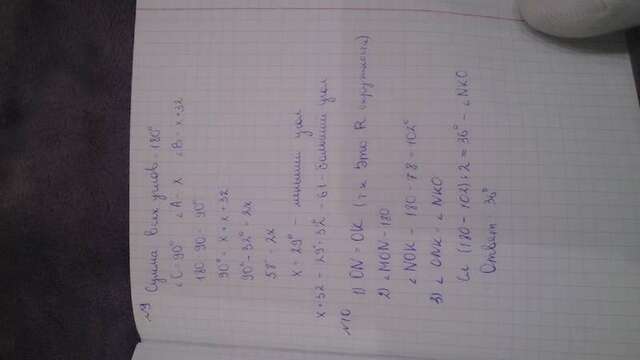 №9
Сумма всех углов = 180°
∠C = 90° ∠A = x ∠B = x + 32
180 - 90 = 90°
90° = x + x + 32
90° - 32° = 2x
58° = 2x
x = 29° - меньший угол
x + 32 = 29 + 32 = 61 - больший угол
№10
1) ON = OK (т.к это R окружности)
2) ∠MON = 180
∠NOK = 180 - 78 = 102°
3) ∠ONK = ∠NKO
(180 - 102) : 2 = 36° - ∠NKO
Ответ: 36°